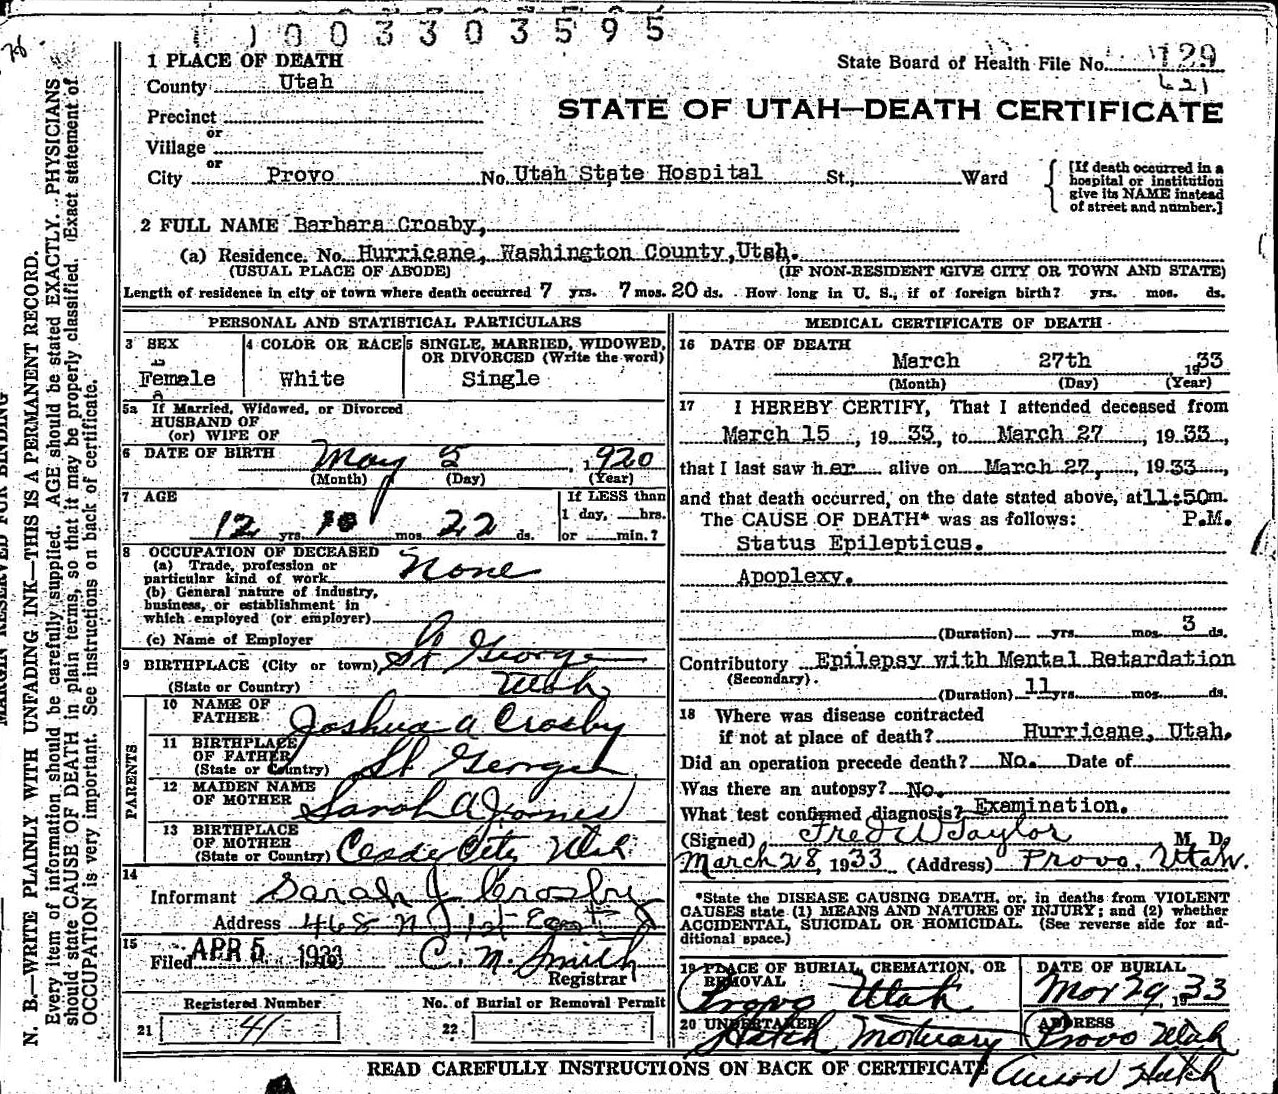 1003303595
State Board of Health File No. 129
621
1 PLACE OF DEATH
County Utah
STATE OF UTAH—DEATH CERTIFICATE
Precinct
or
Village
or
City Provo No. Utah State Hospital St., Ward
[If death occurred in a hospital or institution give its NAME instead of street and number.]
2 FULL NAME Barbara Crosby,
(a) Residence. No. Hurricane, Washington County, Utah.
(USUAL PLACE OF ABODE) (IF NON-RESIDENT GIVE CITY OR TOWN AND STATE)
Length of residence in city or town where death occurred 7 yrs. 7 mos. 20 ds. How long in U. S., if of foreign birth? yrs. mos. ds.
PERSONAL AND STATISTICAL PARTICULARS
3 SEX
Female
4 COLOR OR RACE
White
5 SINGLE, MARRIED, WIDOWED, OR DIVORCED (Write the word)
Single
5a If Married, Widowed, or Divorced
HUSBAND OF
(or) WIFE OF
6 DATE OF BIRTH May 5, 1920
(Month) (Day) (Year)
7 AGE
12 yrs. 10 mos. 22 ds.
If LESS than
1 day, hrs.
or min.?
8 OCCUPATION OF DECEASED
(a) Trade, profession or
particular kind of work None
(b) General nature of industry,
business, or establishment in
which employed (or employer)
(c) Name of Employer
9 BIRTHPLACE (City or town) St George
(State or Country) Utah
PARENTS
10 NAME OF FATHER Joshua A Crosby
11 BIRTHPLACE OF FATHER (State or Country) St. George
12 MAIDEN NAME OF MOTHER Sarah A Jones
13 BIRTHPLACE OF MOTHER (State or Country) Ceader City Utah
14
Informant Sarah J Crosby
Address 468 N 1st East
15
Filed APR 5 1933 C. M. Smith
Registrar
Registered Number No. of Burial or Removal Permit
21 41 22
MEDICAL CERTIFICATE OF DEATH
16 DATE OF DEATH
March 27th 1933
(Month) (Day) (Year)
17 I HEREBY CERTIFY, That I attended deceased from
March 15, 1933, to March 27, 1933,
that I last saw her alive on March 27, 1933,
and that death occurred, on the date stated above, at 11:50m.
The CAUSE OF DEATH* was as follows: P.M.
Status Epilepticus.
Apoplexy.
(Duration) yrs. mos. 3 ds.
Contributory Epilepsy with Mental Retardation
(Secondary).
(Duration) 11 yrs. mos. ds.
18 Where was disease contracted
if not at place of death? Hurricane, Utah.
Did an operation precede death? No. Date of
Was there an autopsy? No.
What test confirmed diagnosis? Examination.
(Signed) Fred W Taylor M. D.
March 28, 1933 (Address) Provo, Utah.
*State the DISEASE CAUSING DEATH, or, in deaths from VIOLENT
CAUSES state (1) MEANS AND NATURE OF INJURY; and (2) whether
ACCIDENTAL, SUICIDAL OR HOMICIDAL. (See reverse side for ad-
ditional space.)
19 PLACE OF BURIAL, CREMATION, OR REMOVAL
Provo Utah
DATE OF BURIAL
Mar 29, 1933
20 UNDERTAKER
Hatch Mortuary
ADDRESS
Provo Utah
READ CAREFULLY INSTRUCTIONS ON BACK OF CERTIFICATE
Anson Hatch
MARGIN RESERVED FOR BINDING
N. B.—WRITE PLAINLY WITH UNFADING INK—THIS IS A PERMANENT RECORD.
Every item of information should be carefully supplied. AGE should be stated EXACTLY. PHYSICIANS
should state CAUSE OF DEATH in plain terms, so that it may be properly classified. (Exact statement of
OCCUPATION is very important. See instructions on back of certificate.